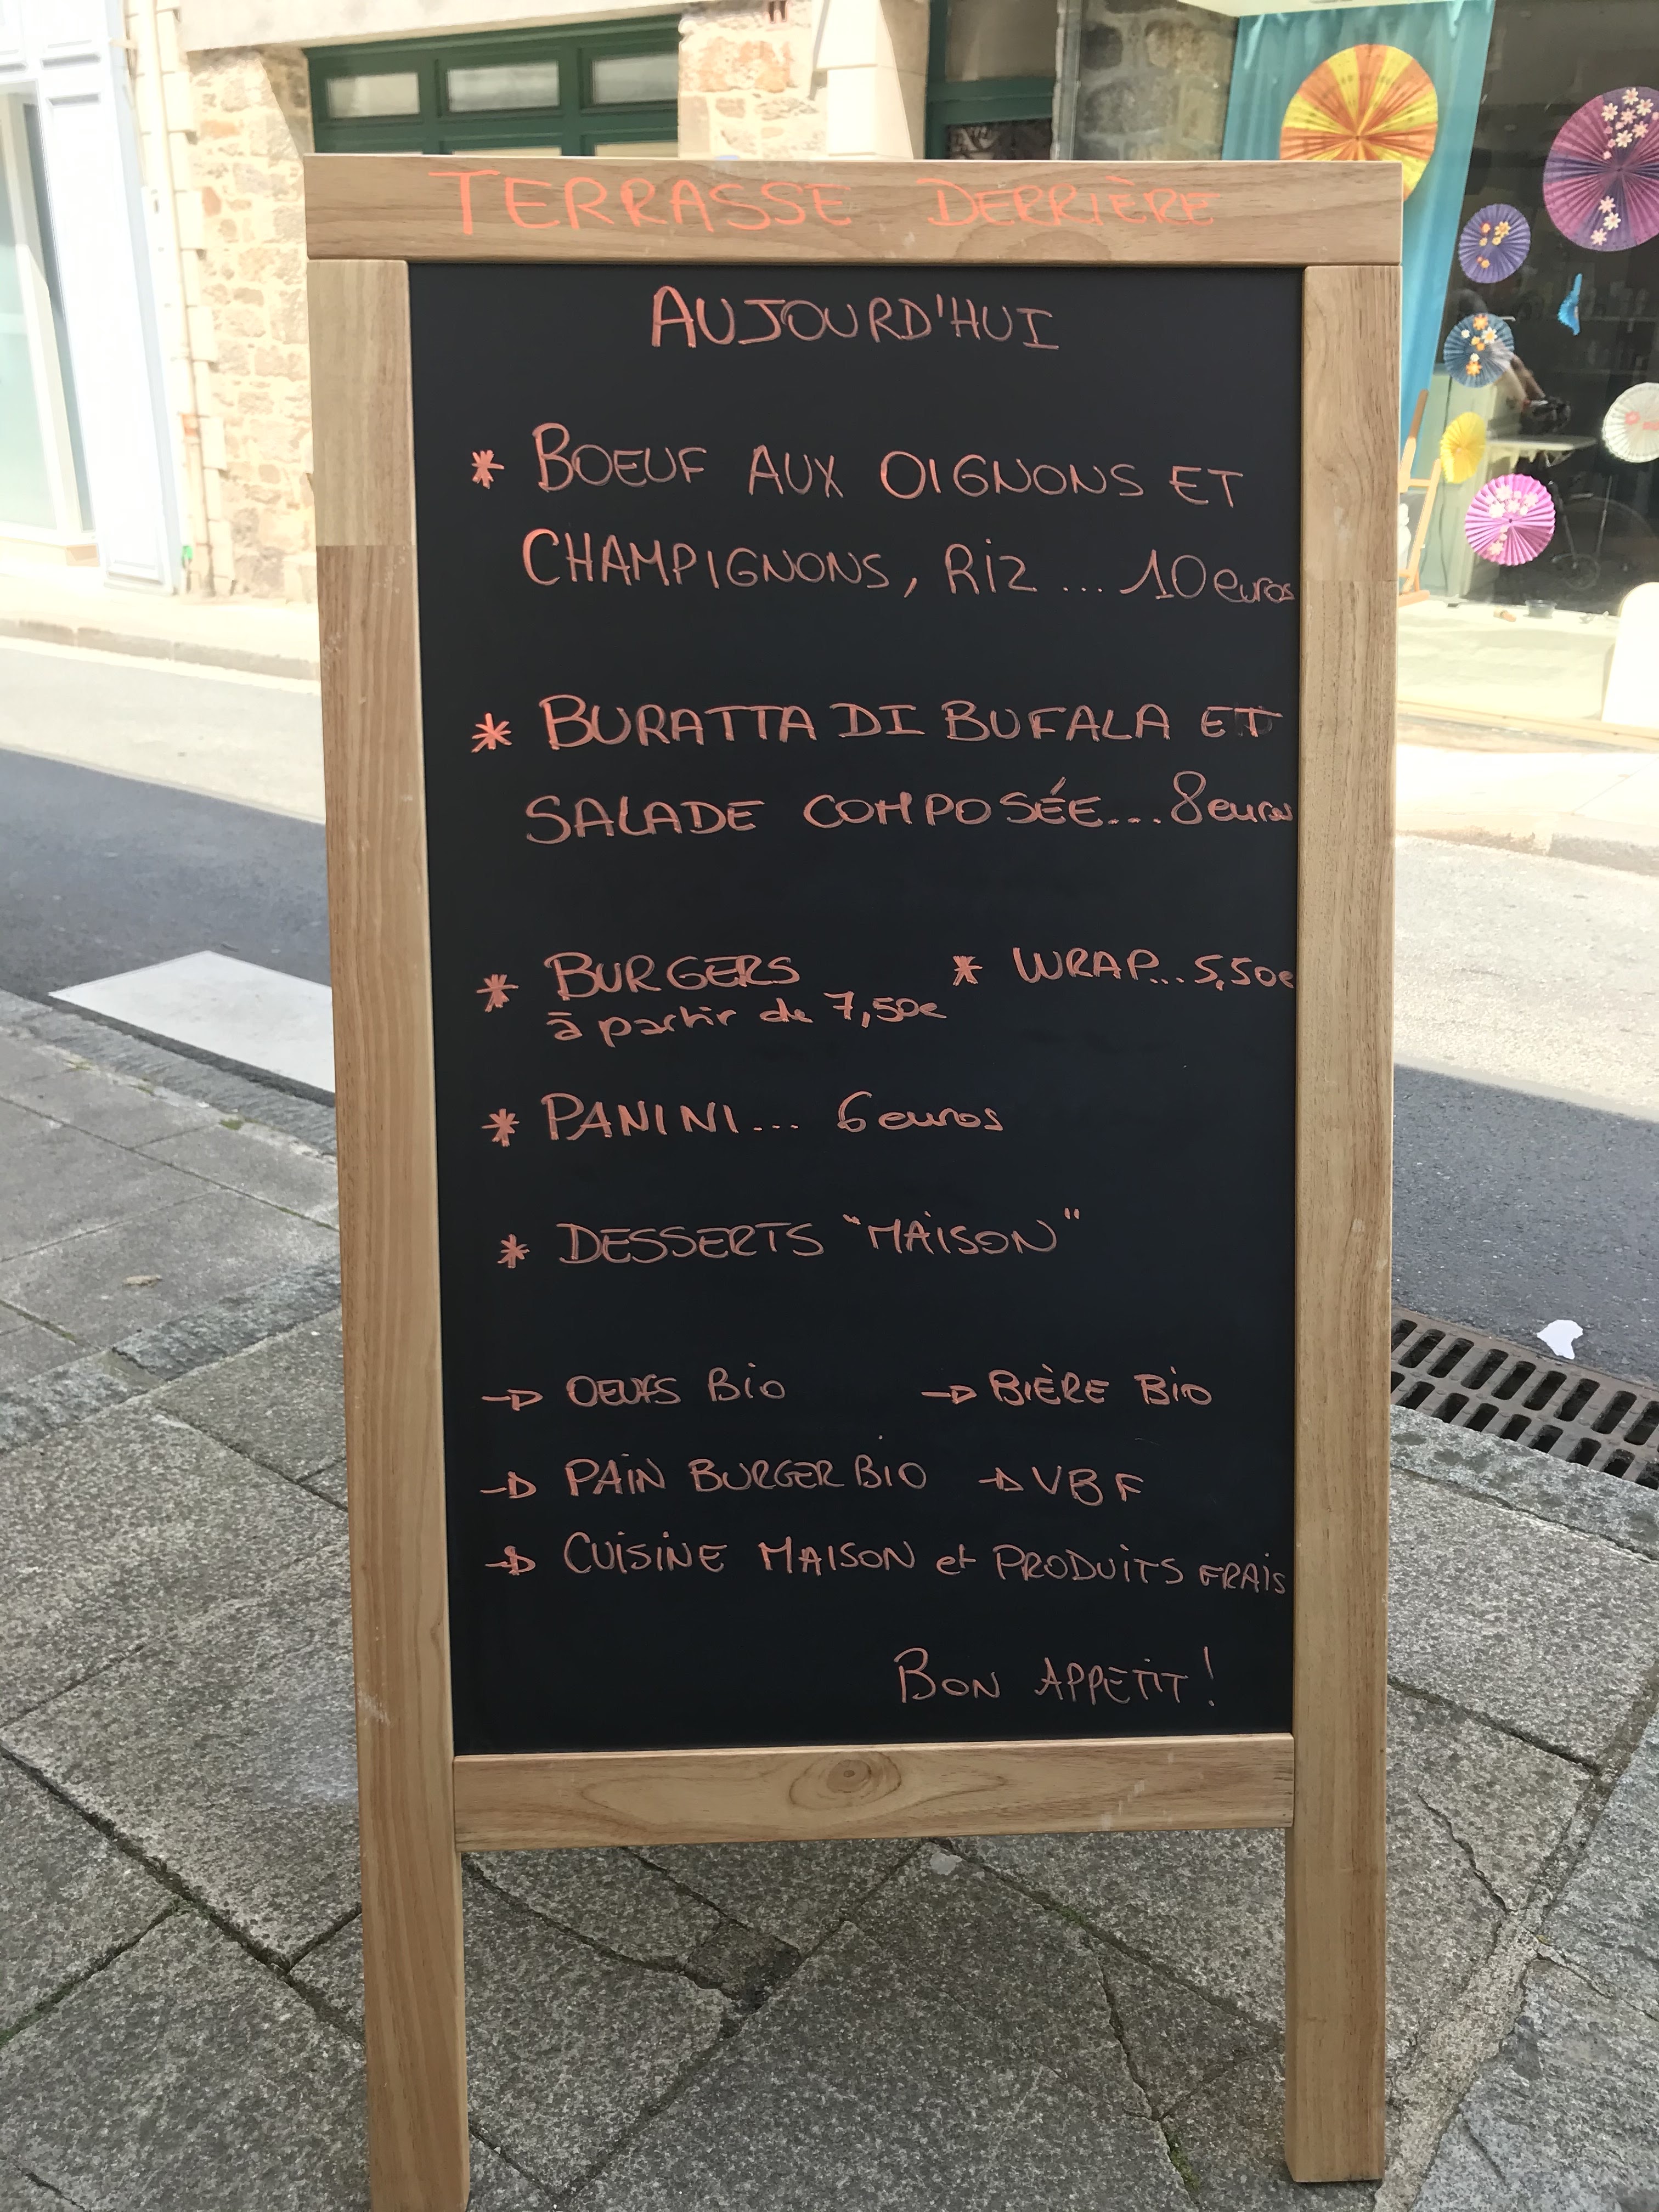 TERRASSE DERRIÈRE
AUJOURD'HUI
* BOEUF AUX OIGNONS ET
CHAMPIGNONS, RIZ ... 10 euros
* BURATTA DI BUFALA ET
SALADE COMPOSÉE... 8 euros
* BURGERS * WRAP... 5,50€
à partir de 7,50€
* PANINI... 6 euros
* DESSERTS "MAISON"
→ OEUFS BIO → BIÈRE BIO
→ PAIN BURGER BIO → VBF
→ CUISINE MAISON et PRODUITS FRAIS
BON APPETIT !